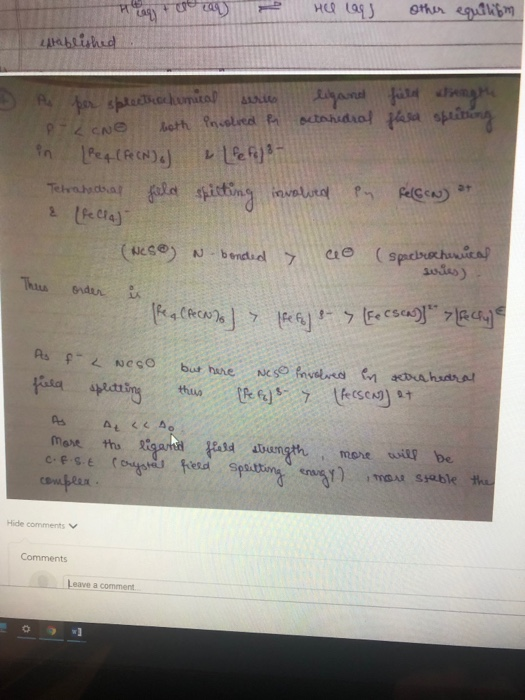 H⊕ (aq) + Cl⊖ (aq) ⇌ HCl (aq) other equilibm
established.
As per spectrochemical series ligand field strength
F⁻ < CN⊖ both involved in octahedral field splitting
in [Fe4(Fe(CN)6] & [FeF6]3-
Tetrahedral field splitting involved in Fe(SCN) 2+
& [FeCl4]-
(NCS⊖) N-bonded > Cl⊖ (spectrochemical series).
Thus order is
[Fe4(Fe(CN)6] > [FeF6]3- > [Fe(SCN)]2+ > [FeCl4]⊖
As F- < NCS⊖ but here NCS⊖ involved in tetrahedral
field splitting thus [FeF6]3- > [Fe(SCN)] 2+
As Δt << Δo
More the ligand field strength, more will be
C.F.S.E (crystal field splitting energy), more stable the
complex.
Hide comments
Comments
Leave a comment